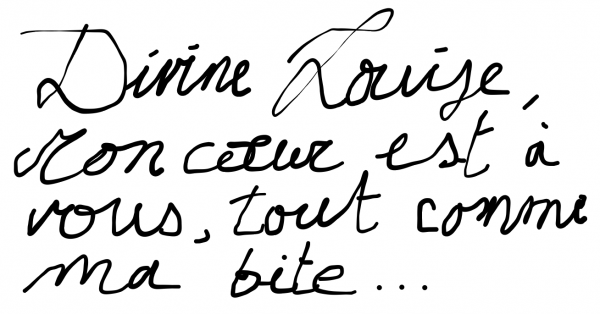 Divine Louise,
Mon cœur est à
vous, tout comme
ma bite...